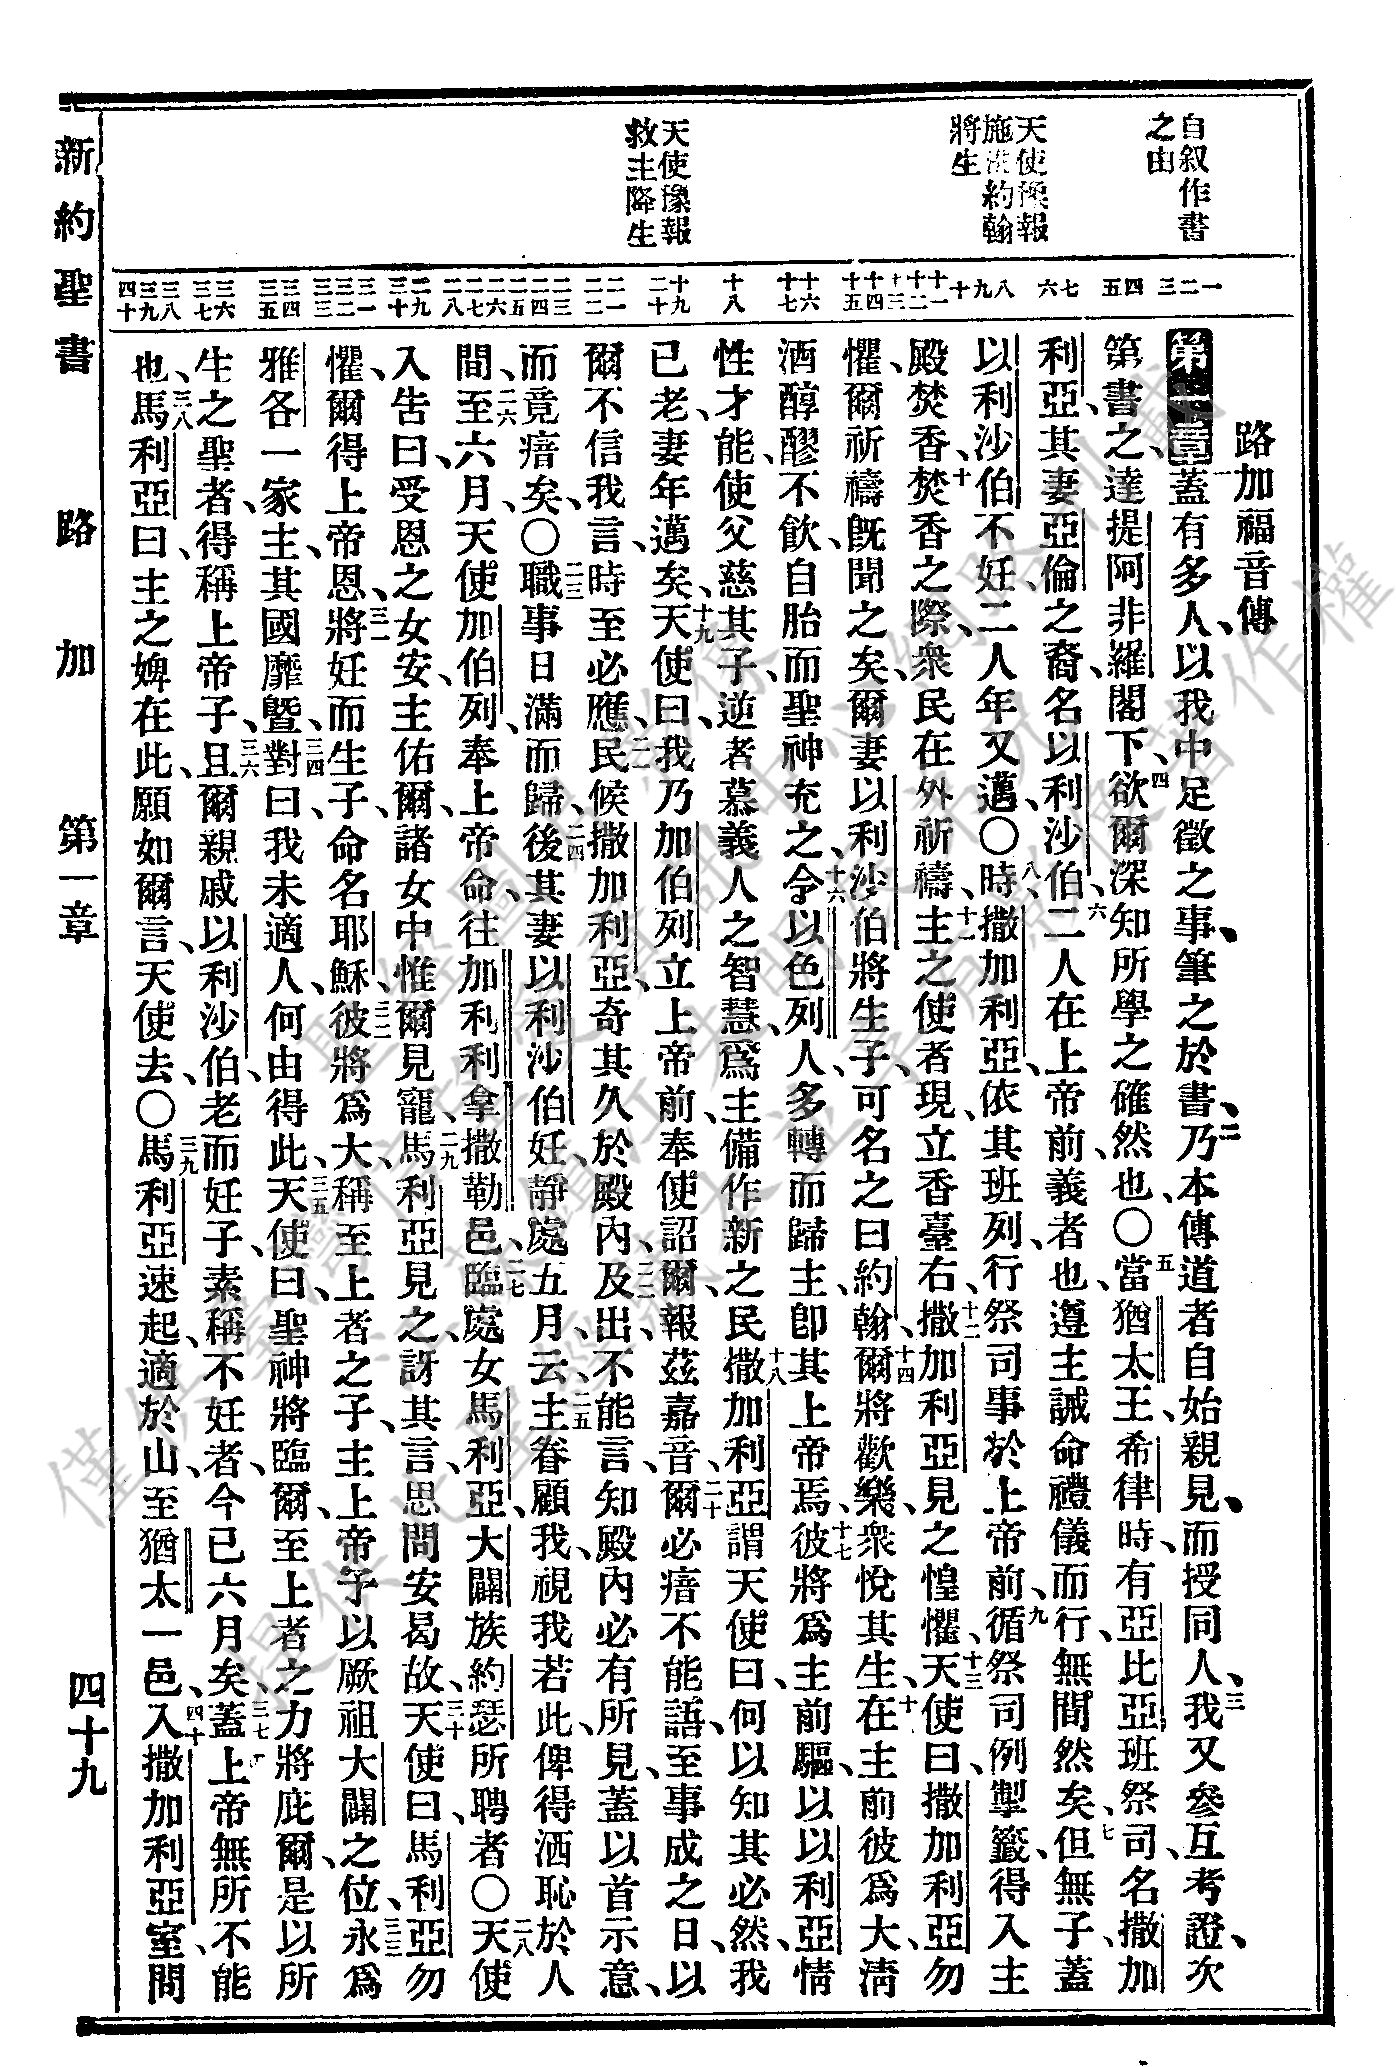 自叙作書
之由
天使豫報
施洗約翰
將生
天使豫報
救主降生
一二三 四五 六七 八九十 十一十二十三 十四十五 十六十七 十八 十九二十 二一二二 二三二四二五 二六二七二八 二九三十 三一三二三三 三四三五 三六三七 三八三九四十
路加福音傳
第一章蓋有多人、以我中足徵之事、筆之於書、二乃本傳道者自始親見、而授同人、三我又參互考證、次
第書之、達提阿非羅閣下、四欲爾深知所學之確然也、〇五當猶太王、希律時、有亞比亞班祭司、名撒加
利亞、其妻亞倫之裔、名以利沙伯、六二人在上帝前義者也、遵主誡命禮儀而行、無間然矣、七但無子、蓋
以利沙伯不妊、二人年又邁、〇八時撒加利亞、依其班列、行祭司事於上帝前、九循祭司例掣籤、得入主
殿焚香、十焚香之際、衆民在外祈禱、十一主之使者現、立香臺右、十二撒加利亞見之惶懼、十三天使曰、撒加利亞勿
懼、爾祈禱旣聞之矣、爾妻以利沙伯將生子、可名之曰約翰、十四爾將歡樂、衆悅其生、十五在主前彼爲大、淸
酒醇醪不飮、自胎而聖神充之、十六令以色列人多轉而歸主、卽其上帝焉、十七彼將爲主前驅、以以利亞情
性才能、使父慈其子、逆者慕義人之智慧、爲主備作新之民、十八撒加利亞謂天使曰、何以知其必然、我
已老、妻年邁矣、十九天使曰、我乃加伯列、立上帝前、奉使詔爾、報茲嘉音、二十爾必瘖不能語、至事成之日、以
爾不信我言、時至必應、二一民候撒加利亞、奇其久於殿內、二二及出、不能言、知殿內必有所見、蓋以首示意、
而竟瘖矣、〇二三職事日滿而歸、二四後其妻以利沙伯妊、靜處五月、云、二五主眷顧我、視我若此、俾得洒恥於人
間、二六至六月、天使加伯列、奉上帝命、往加利利拿撒勒邑、二七臨處女馬利亞、大闢族、約瑟所聘者、〇二八天使
入告曰、受恩之女安、主佑爾、諸女中惟爾見寵、二九馬利亞見之、訝其言、思問安曷故、三十天使曰、馬利亞勿
懼、爾得上帝恩、三一將妊而生子、命名耶穌、三二彼將爲大、稱至上者之子、主上帝予以厥祖大闢之位、三三永爲
雅各一家主、其國靡曁、三四對曰、我未適人、何由得此、三五天使曰、聖神將臨爾、至上者之力將庇爾、是以所
生之聖者、得稱上帝子、三六且爾親戚以利沙伯、老而妊子、素稱不妊者、今已六月矣、三七蓋上帝無所不能
也、三八馬利亞曰、主之婢在此、願如爾言、天使去、〇三九馬利亞速起、適於山、至猶太一邑、四十入撒加利亞室、問
新約聖書 路加 第一章 四十九